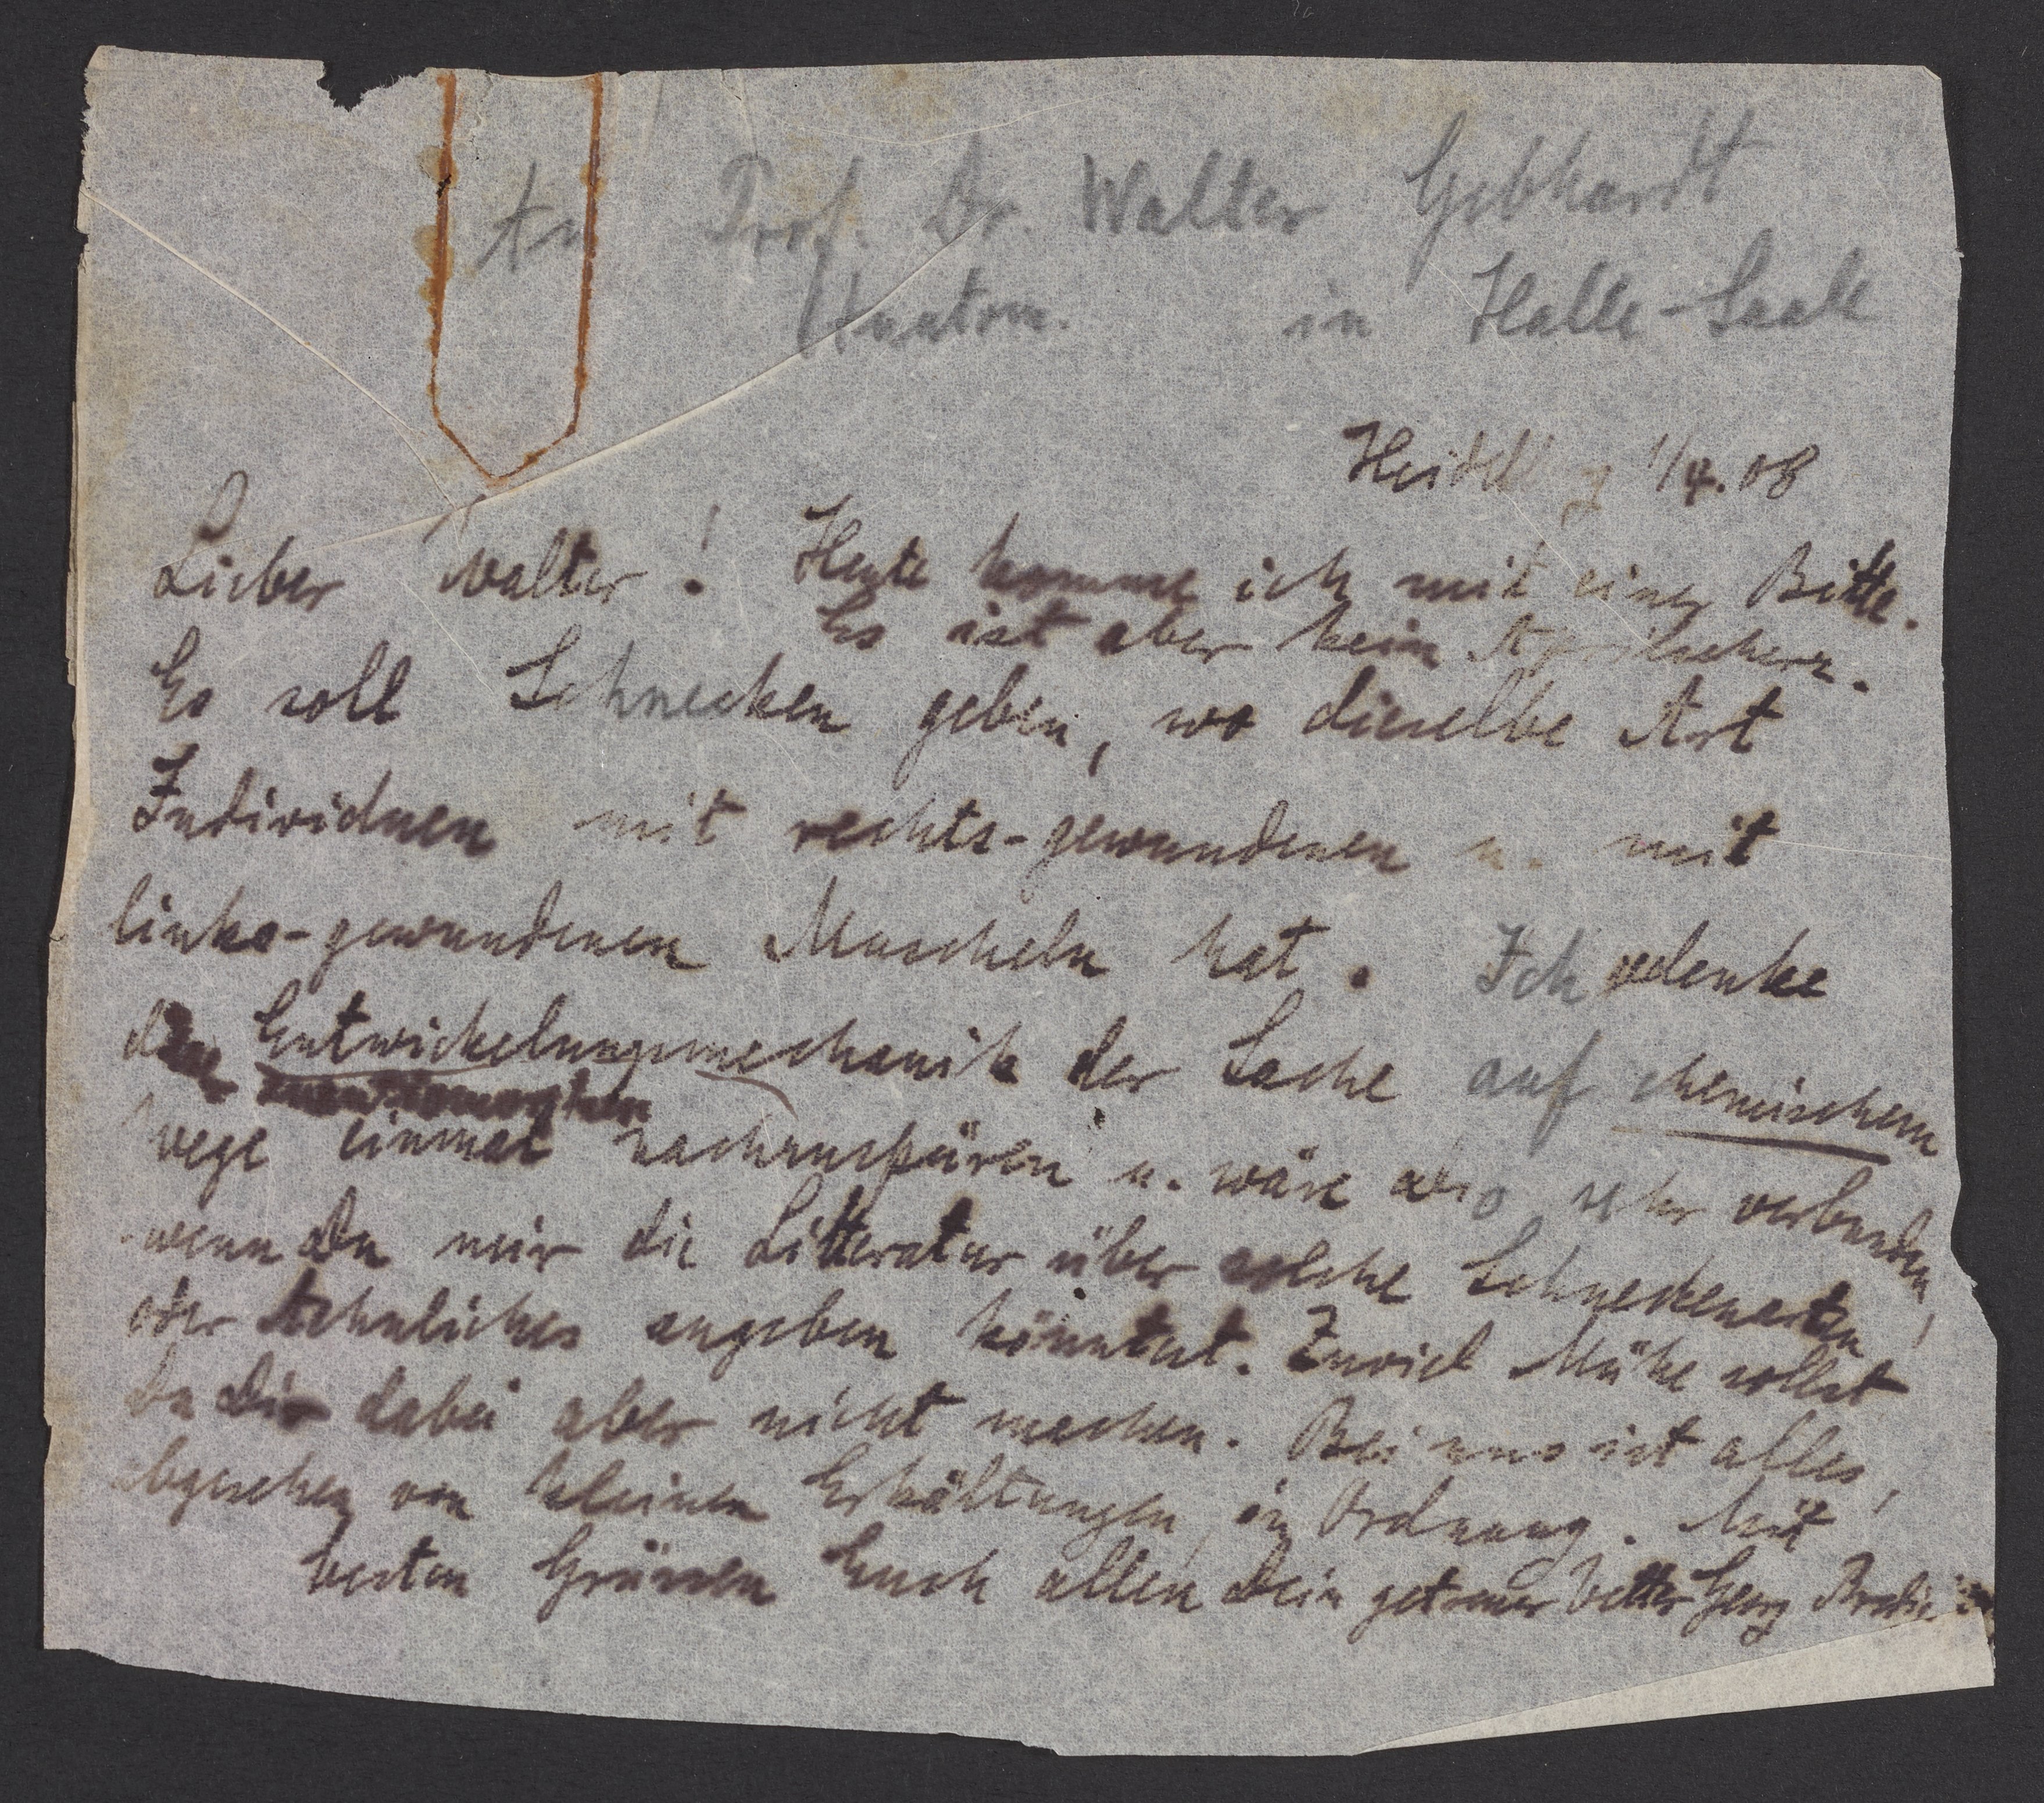 An Prof. Dr. Walter Gebhardt
Anatom. in Halle-Saale
1/4.08
Lieber Walter! Heute komme ich mit einer Bitte.
Es ist aber kein Aprilscherz.
Es soll Schnecken geben, wo dieselbe Art
Individuen mit rechts-gewundenen u. mit
links-gewundenen Muscheln hat. Ich gedenke
der Entwickelungsmechanik der Sache auf chemischem
wege einmal nachzuspüren u. wäre also sehr verbunden,
wenn Du mir die Litteratur über solche Schneckenarten
oder Aehnliches angeben könntest. Zuviel Mühe sollst
Du Dir dabei aber nicht machen. Bei uns ist alles,
abgesehen von kleinen Erkältungen, in Ordnung. Mit
besten Grüssen Euch allen Dein getreuer Vetter Georg